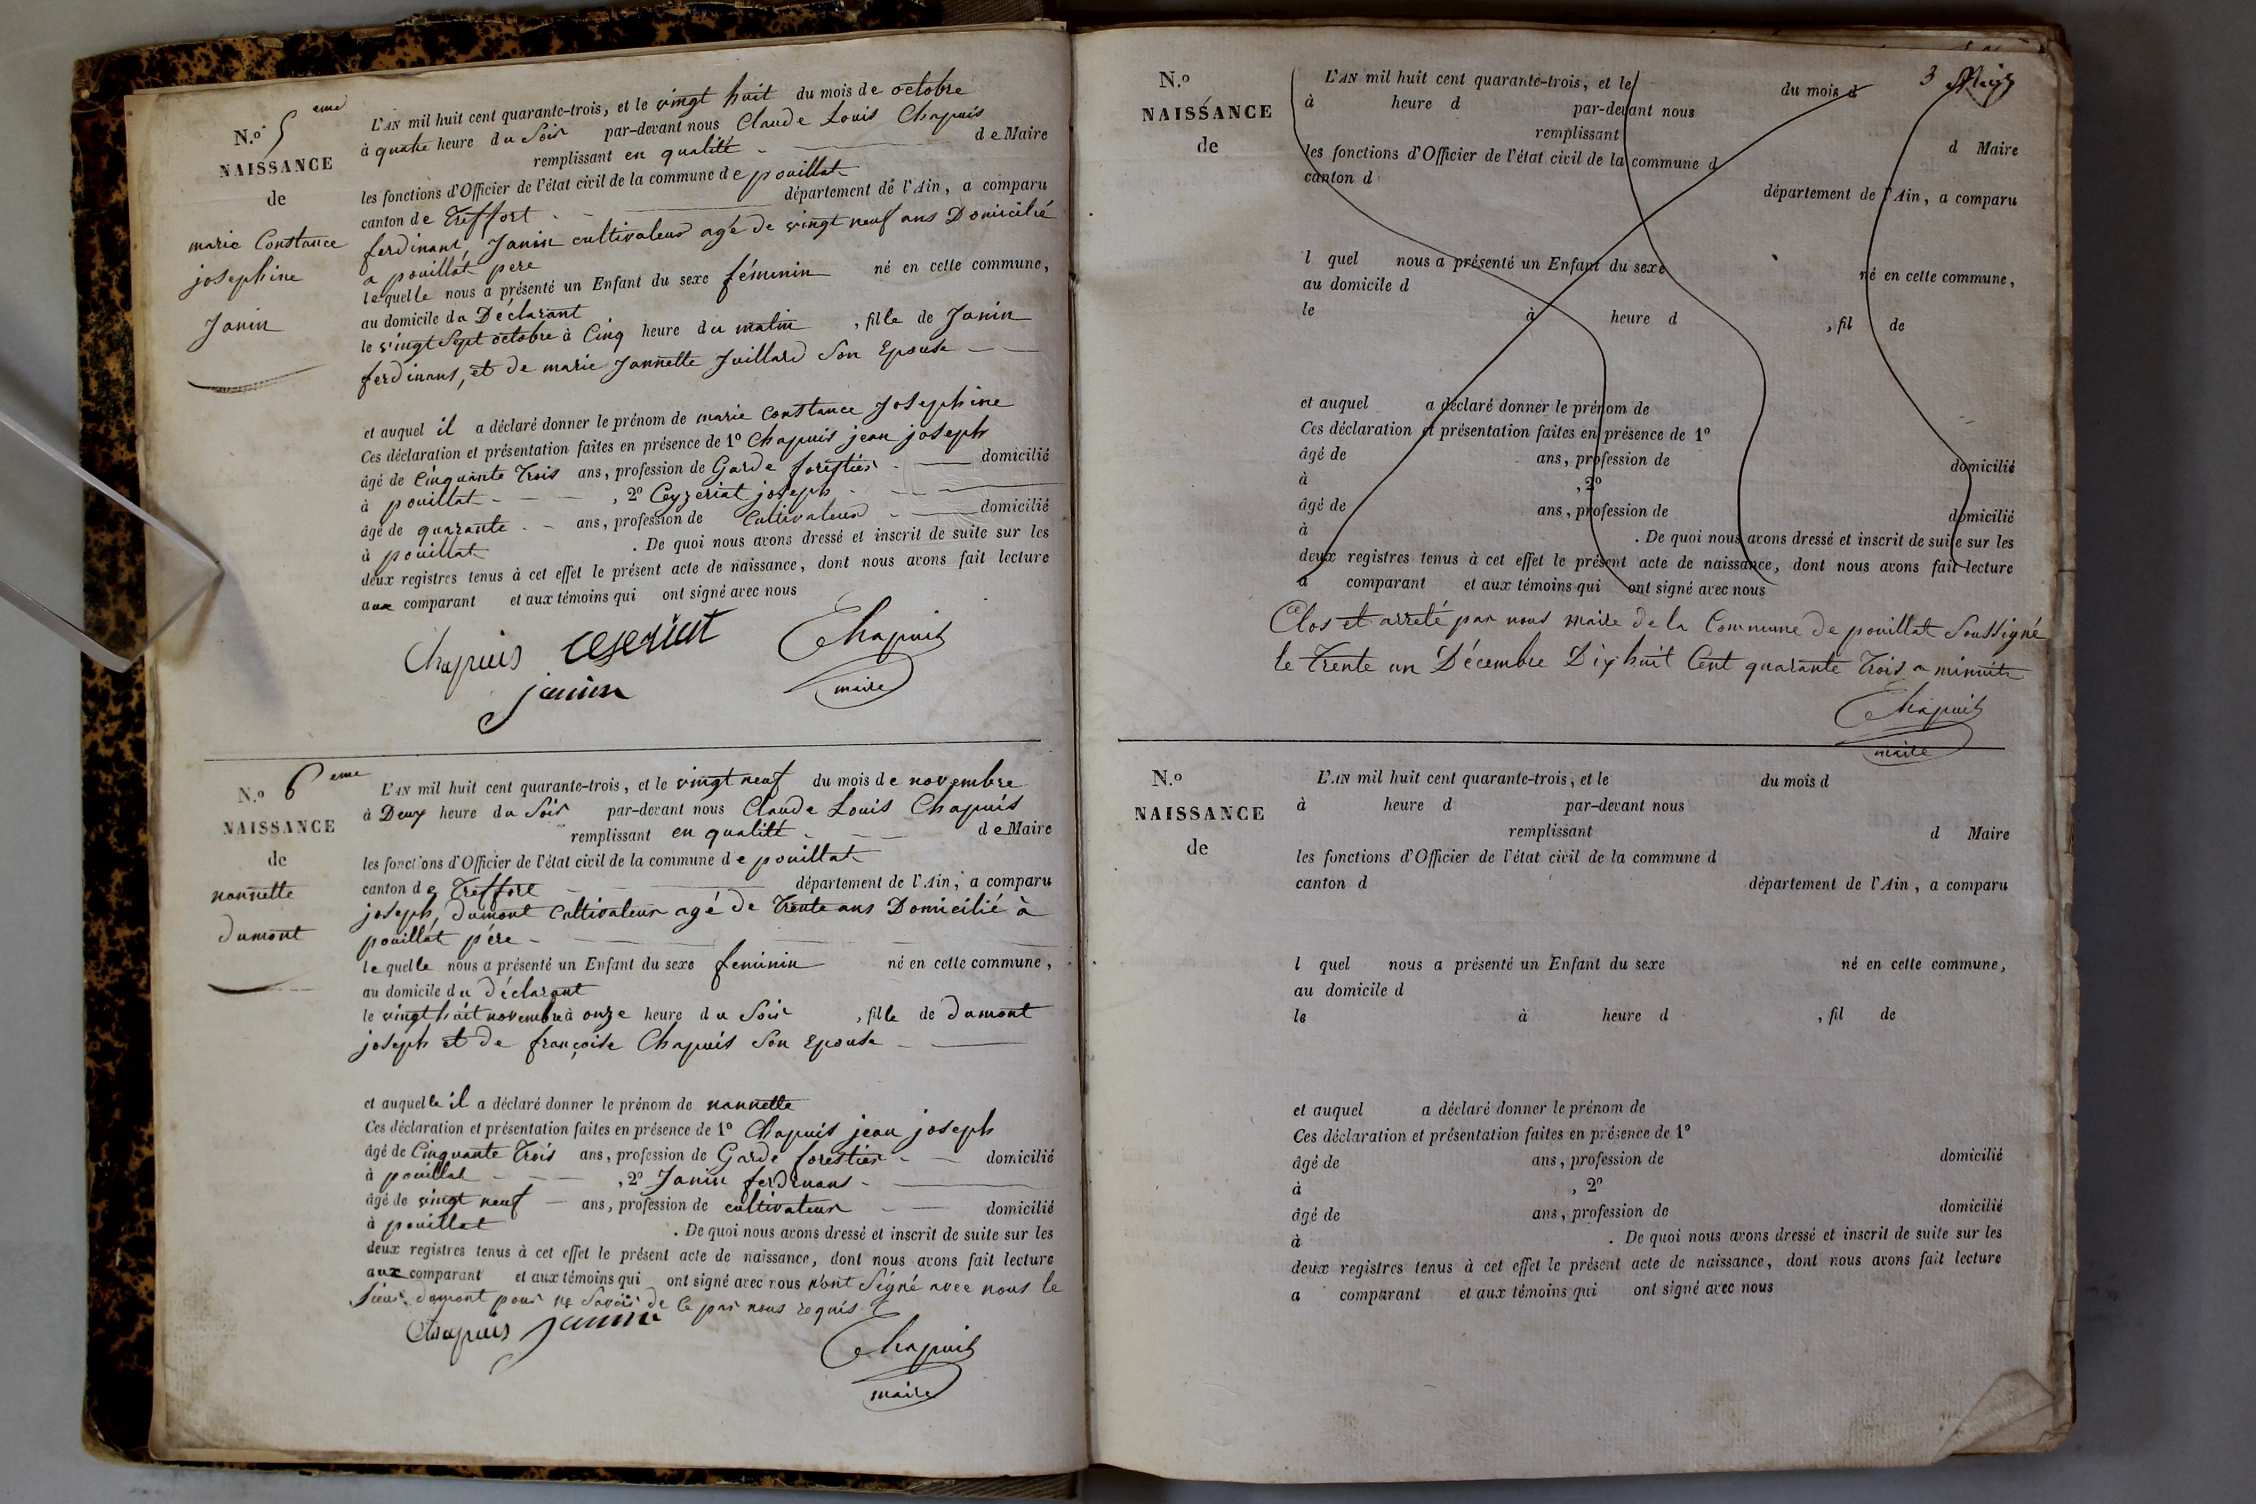 N.º 5 eme
NAISSANCE
de
marie Constance
josephine
Janin
L'AN mil huit cent quarante-trois, et le vingt huit du mois de octobre
à quatre heure du Soir par-devant nous Claude Louis Chapuis
remplissant en qualité de Maire
les fonctions d'Officier de l'état civil de la commune de pouillat
canton de Treffort département de l'Ain, a comparu
ferdinant, Janin cultivateur agé de vingt neuf ans Domicilié
a pouillat pere
lequelle nous a présenté un Enfant du sexe féminin né en cette commune,
au domicile du Déclarant
le vingt Sept octobre à Cinq heure du matin , fille de Janin
ferdinans, et de marie Jannette Juillard Son Epouse
et auquel il a déclaré donner le prénom de marie Constance Josephine
Ces déclaration et présentation faites en présence de 1º Chapuis jean joseph
âgé de Cinquante Trois ans, profession de Garde forestier domicilié
à pouillat , 2º Ceyzeriat joseph
âgé de quarante ans, profession de Cultivateur domicilié
à pouillat . De quoi nous avons dressé et inscrit de suite sur les
deux registres tenus à cet effet le présent acte de naissance, dont nous avons fait lecture
aux comparant et aux témoins qui ont signé avec nous
Chapuis ceseriat Chapuis
janin maire
N.º 6 eme
NAISSANCE
de
nannette
dumont
L'AN mil huit cent quarante-trois, et le vingt neuf du mois de novembre
à Deux heure du Soir par-devant nous Claude Louis Chapuis
remplissant en qualité de Maire
les fonctions d'Officier de l'état civil de la commune de pouillat
canton de Treffort département de l'Ain, a comparu
joseph, dumont Cultivateur agé de Trente ans Domicilié à
pouillat pére
lequelle nous a présenté un Enfant du sexe feminin né en cette commune,
au domicile du déclarant
le vingt huit novembre à onze heure du Soir , fille de dumont
joseph et de françoise Chapuis Son Epouse
et auquelle il a déclaré donner le prénom de nannette
Ces déclaration et présentation faites en présence de 1º Chapuis jean joseph
âgé de Cinquante Trois ans, profession de Garde forestier domicilié
à pouillat , 2º Janin ferdinans
âgé de vingt neuf ans, profession de cultivateur domicilié
à pouillat . De quoi nous avons dressé et inscrit de suite sur les
deux registres tenus à cet effet le présent acte de naissance, dont nous avons fait lecture
aux comparant et aux témoins qui ont signé avec nous nont Signé avec nous le
Sieur dumont pour ne Savoir de Ce par nous requis
Chapuis janin Chapuis
maire
3
N.º
NAISSANCE
de
L'AN mil huit cent quarante-trois, et le du mois d
à heure d par-devant nous
remplissant d Maire
les fonctions d'Officier de l'état civil de la commune d
canton d département de l'Ain, a comparu
l quel nous a présenté un Enfant du sexe né en cette commune,
au domicile d
le à heure d , fil de
et auquel a déclaré donner le prénom de
Ces déclaration et présentation faites en présence de 1º
âgé de ans, profession de domicilié
à , 2º
âgé de ans, profession de domicilié
à . De quoi nous avons dressé et inscrit de suite sur les
deux registres tenus à cet effet le présent acte de naissance, dont nous avons fait lecture
a comparant et aux témoins qui ont signé avec nous
Clos et arreté par nous maire de la Commune de pouillat Soussigné
le Trente un Décembre Dix huit Cent quarante Trois a minuit
Chapuis
maire
N.º
NAISSANCE
de
L'AN mil huit cent quarante-trois, et le du mois d
à heure d par-devant nous
remplissant d Maire
les fonctions d'Officier de l'état civil de la commune d
canton d département de l'Ain, a comparu
l quel nous a présenté un Enfant du sexe né en cette commune,
au domicile d
le à heure d , fil de
et auquel a déclaré donner le prénom de
Ces déclaration et présentation faites en présence de 1º
âgé de ans, profession de domicilié
à , 2º
âgé de ans, profession de domicilié
à . De quoi nous avons dressé et inscrit de suite sur les
deux registres tenus à cet effet le présent acte de naissance, dont nous avons fait lecture
a comparant et aux témoins qui ont signé avec nous